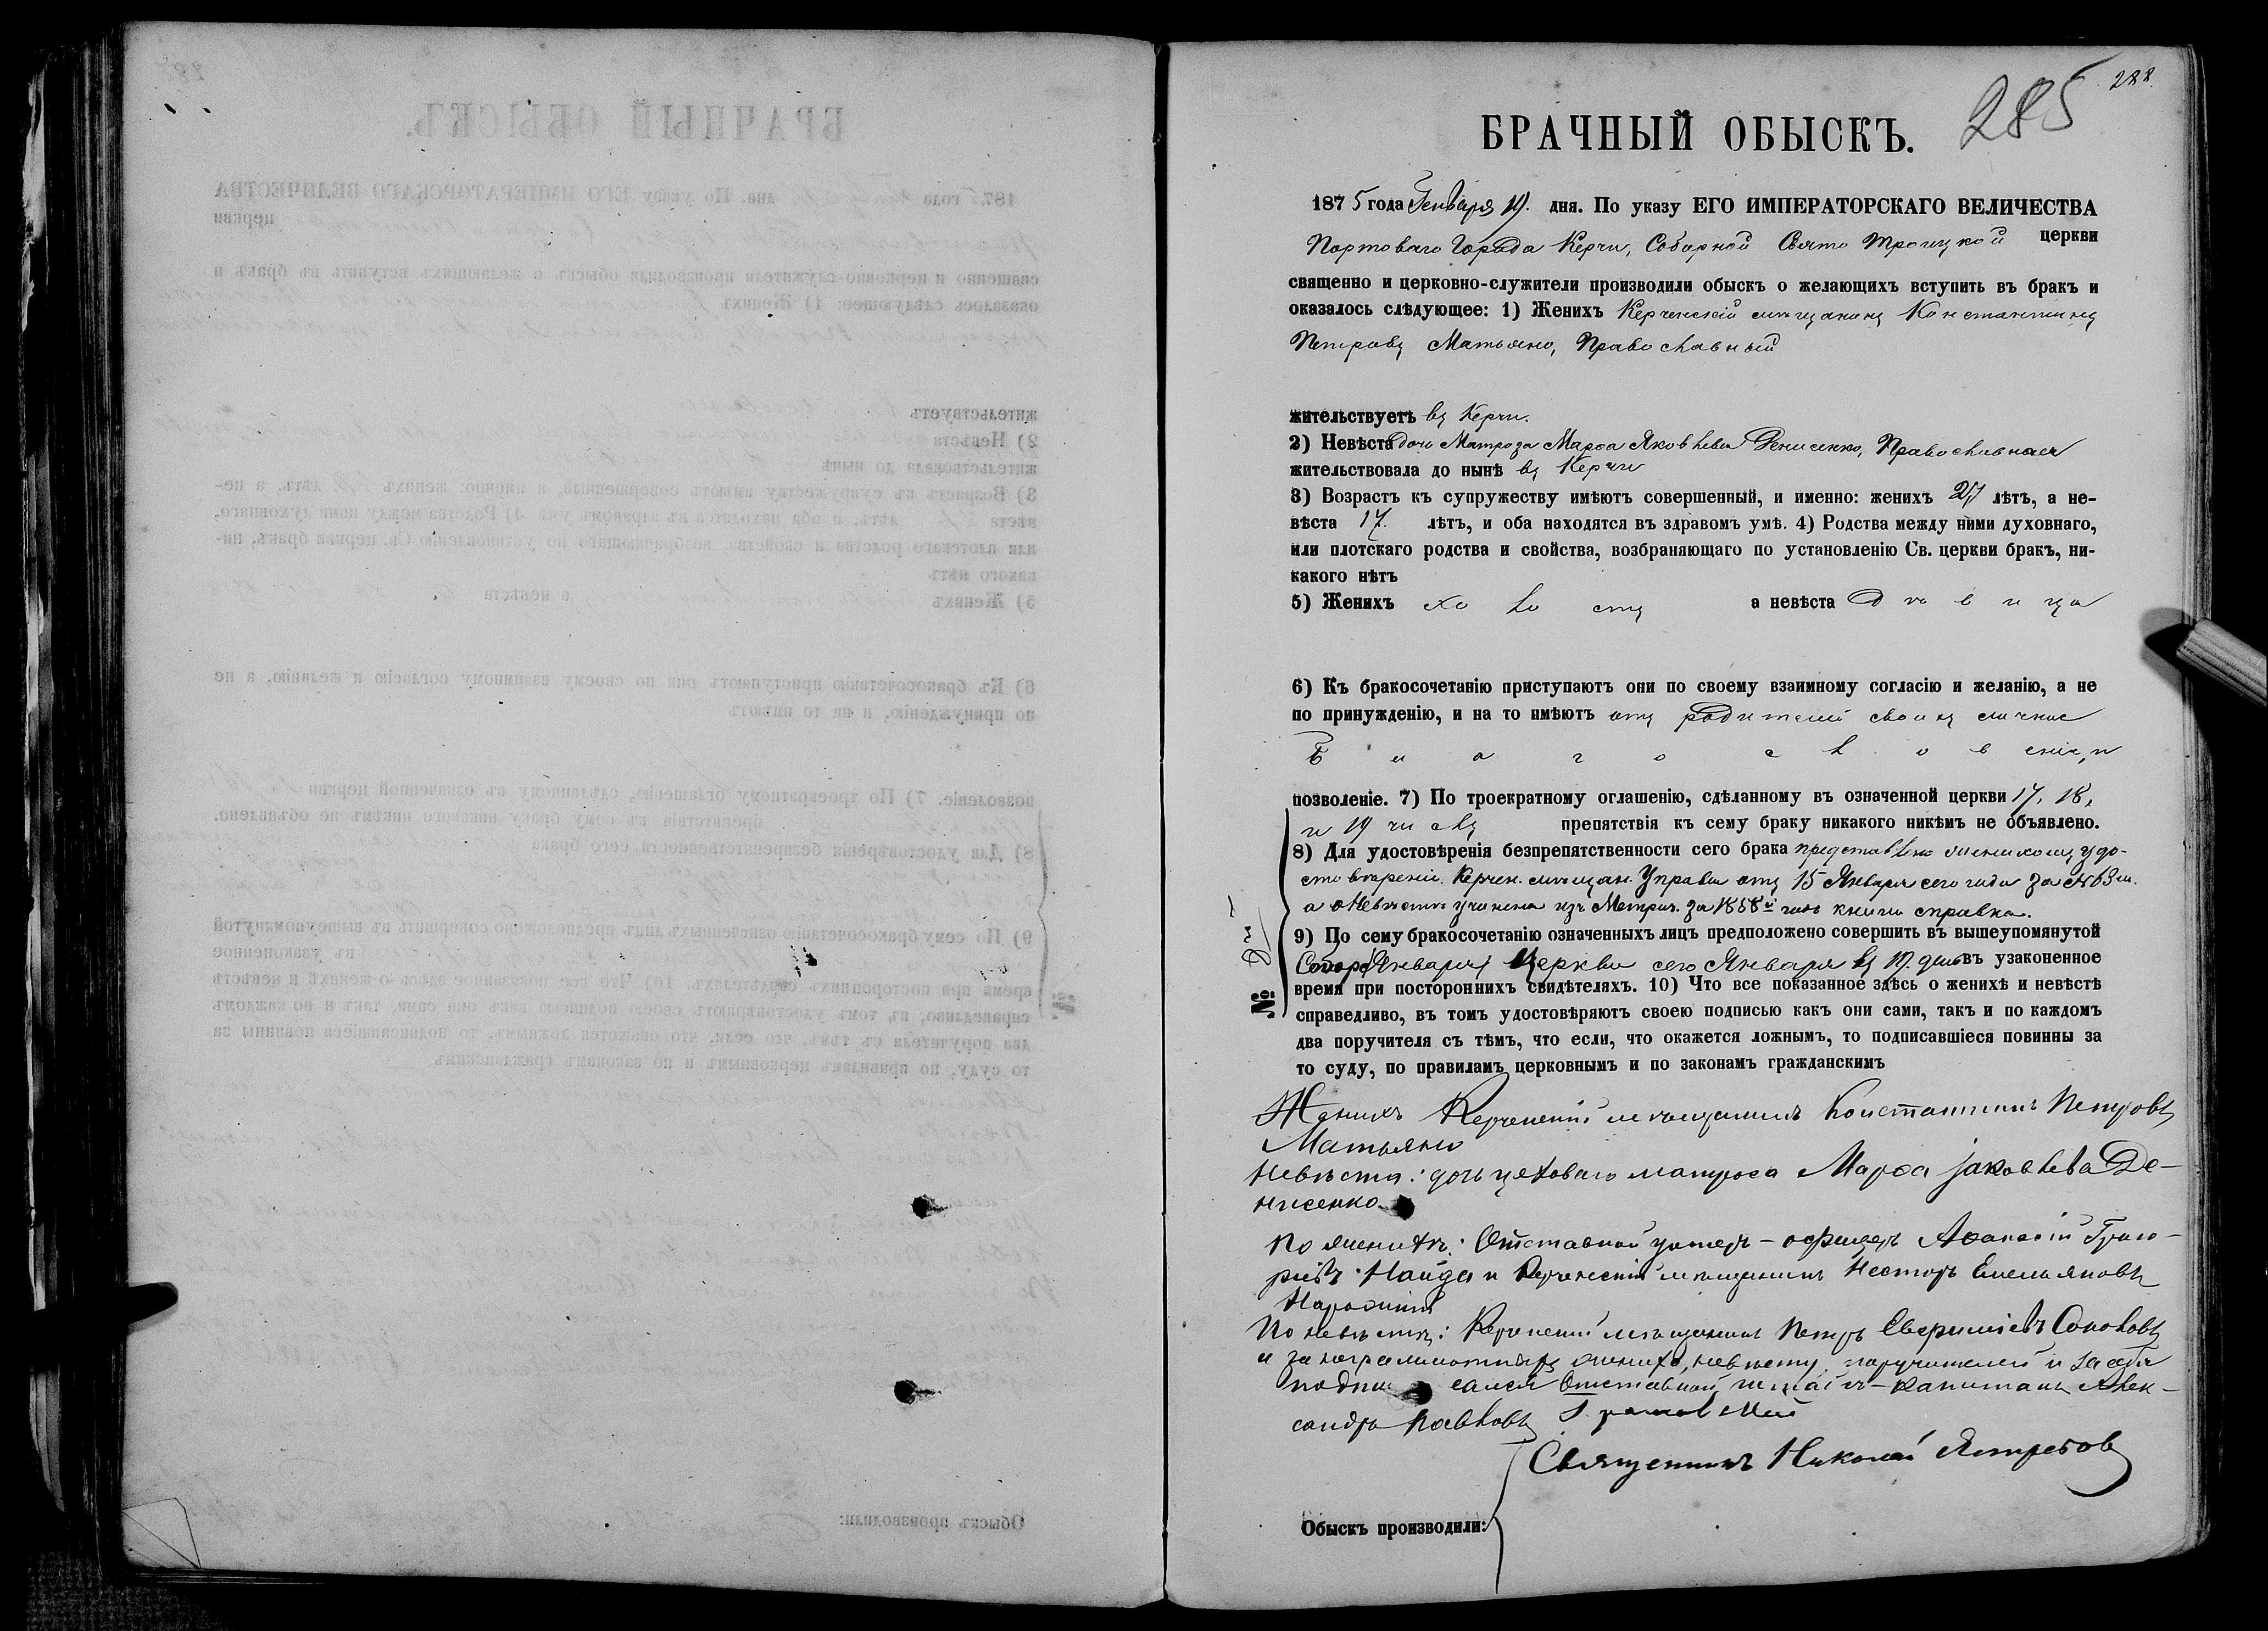 288.
285
БРАЧНЫЙ ОБЫСКЪ.
1875 года Генваря 19. дня. По указу ЕГО ИМПЕРАТОРСКАГО ВЕЛИЧЕСТВА
Портоваго Города Керчи, Соборной Свято Троицкой церкви
священно и церковно-служители производили обыскъ о желающихъ вступить въ бракъ и
оказалось слѣдующее: 1) Женихъ Керченскій мѣщанинъ Константинъ
Петровъ Матьяно, Православный
жительствуетъ въ Керчи.
2) Невѣста дочь Матроза Марѳа Яковлева Денисенко, Православная
жительствовала до нынѣ въ Керчи
3) Возрастъ къ супружеству имѣютъ совершенный, и именно: женихъ 27 лѣтъ, а не-
вѣста 17. лѣтъ, и оба находятся въ здравомъ умѣ. 4) Родства между ними духовнаго,
или плотскаго родства и свойства, возбраняющаго по установленію Св. церкви бракъ, ни-
какого нѣтъ
5) Женихъ холостъ а невѣста дѣвица
6) Къ бракосочетанію приступаютъ они по своему взаимному согласію и желанію, а не
по принужденію, и на то имѣютъ отъ родителей своихъ личное
Благословеніе, и
позволеніе. 7) По троекратному оглашенію, сдѣланному въ означенной церкви 17, 18,
и 19 числъ препятствія къ сему браку никакого никѣмъ не объявлено.
8) Для удостовѣренія безпрепятственности сего брака представлено женихомъ удо-
стовѣреніе Керчен. мѣщан. Управы отъ 15 Января сего года за № 63 м.
а о Невѣстѣ учинена изъ Метрич. за 1858й годъ книги справка.
9) По сему бракосочетанію означенныхъ лицъ предположено совершить въ вышеупомянутой
Церкви сего Января въ 19. день въ узаконенное
время при постороннихъ свидѣтеляхъ. 10) Что все показанное здѣсь о женихѣ и невѣстѣ
справедливо, въ томъ удостовѣряютъ своею подписью какъ они сами, такъ и по каждомъ
два поручителя съ тѣмъ, что если, что окажется ложнымъ, то подписавшіеся повинны за
то суду, по правиламъ церковнымъ и по законамъ гражданскимъ
№
Женихъ Керченскій мѣщанинъ Константинъ Петровъ
Матьяно
Невѣста: дочь цеховаго матроса Марѳа Јаковлева Де-
нисенко.
По женихѣ: Отставной унтеръ-офицеръ Аѳанасій Григо-
рьевъ Найда и Керченскій мѣщанинъ Несторъ Емельяновъ
По невѣстѣ: Керченскій мѣщанинъ Петръ Соколовъ
и за неграмотныхъ жениха, невѣсту, поручителей и за себя
подписался Отставной штабсъ-капитанъ Алек-
сандръ Павловъ
Священникъ Николай Ястребовъ
Обыскъ производили: